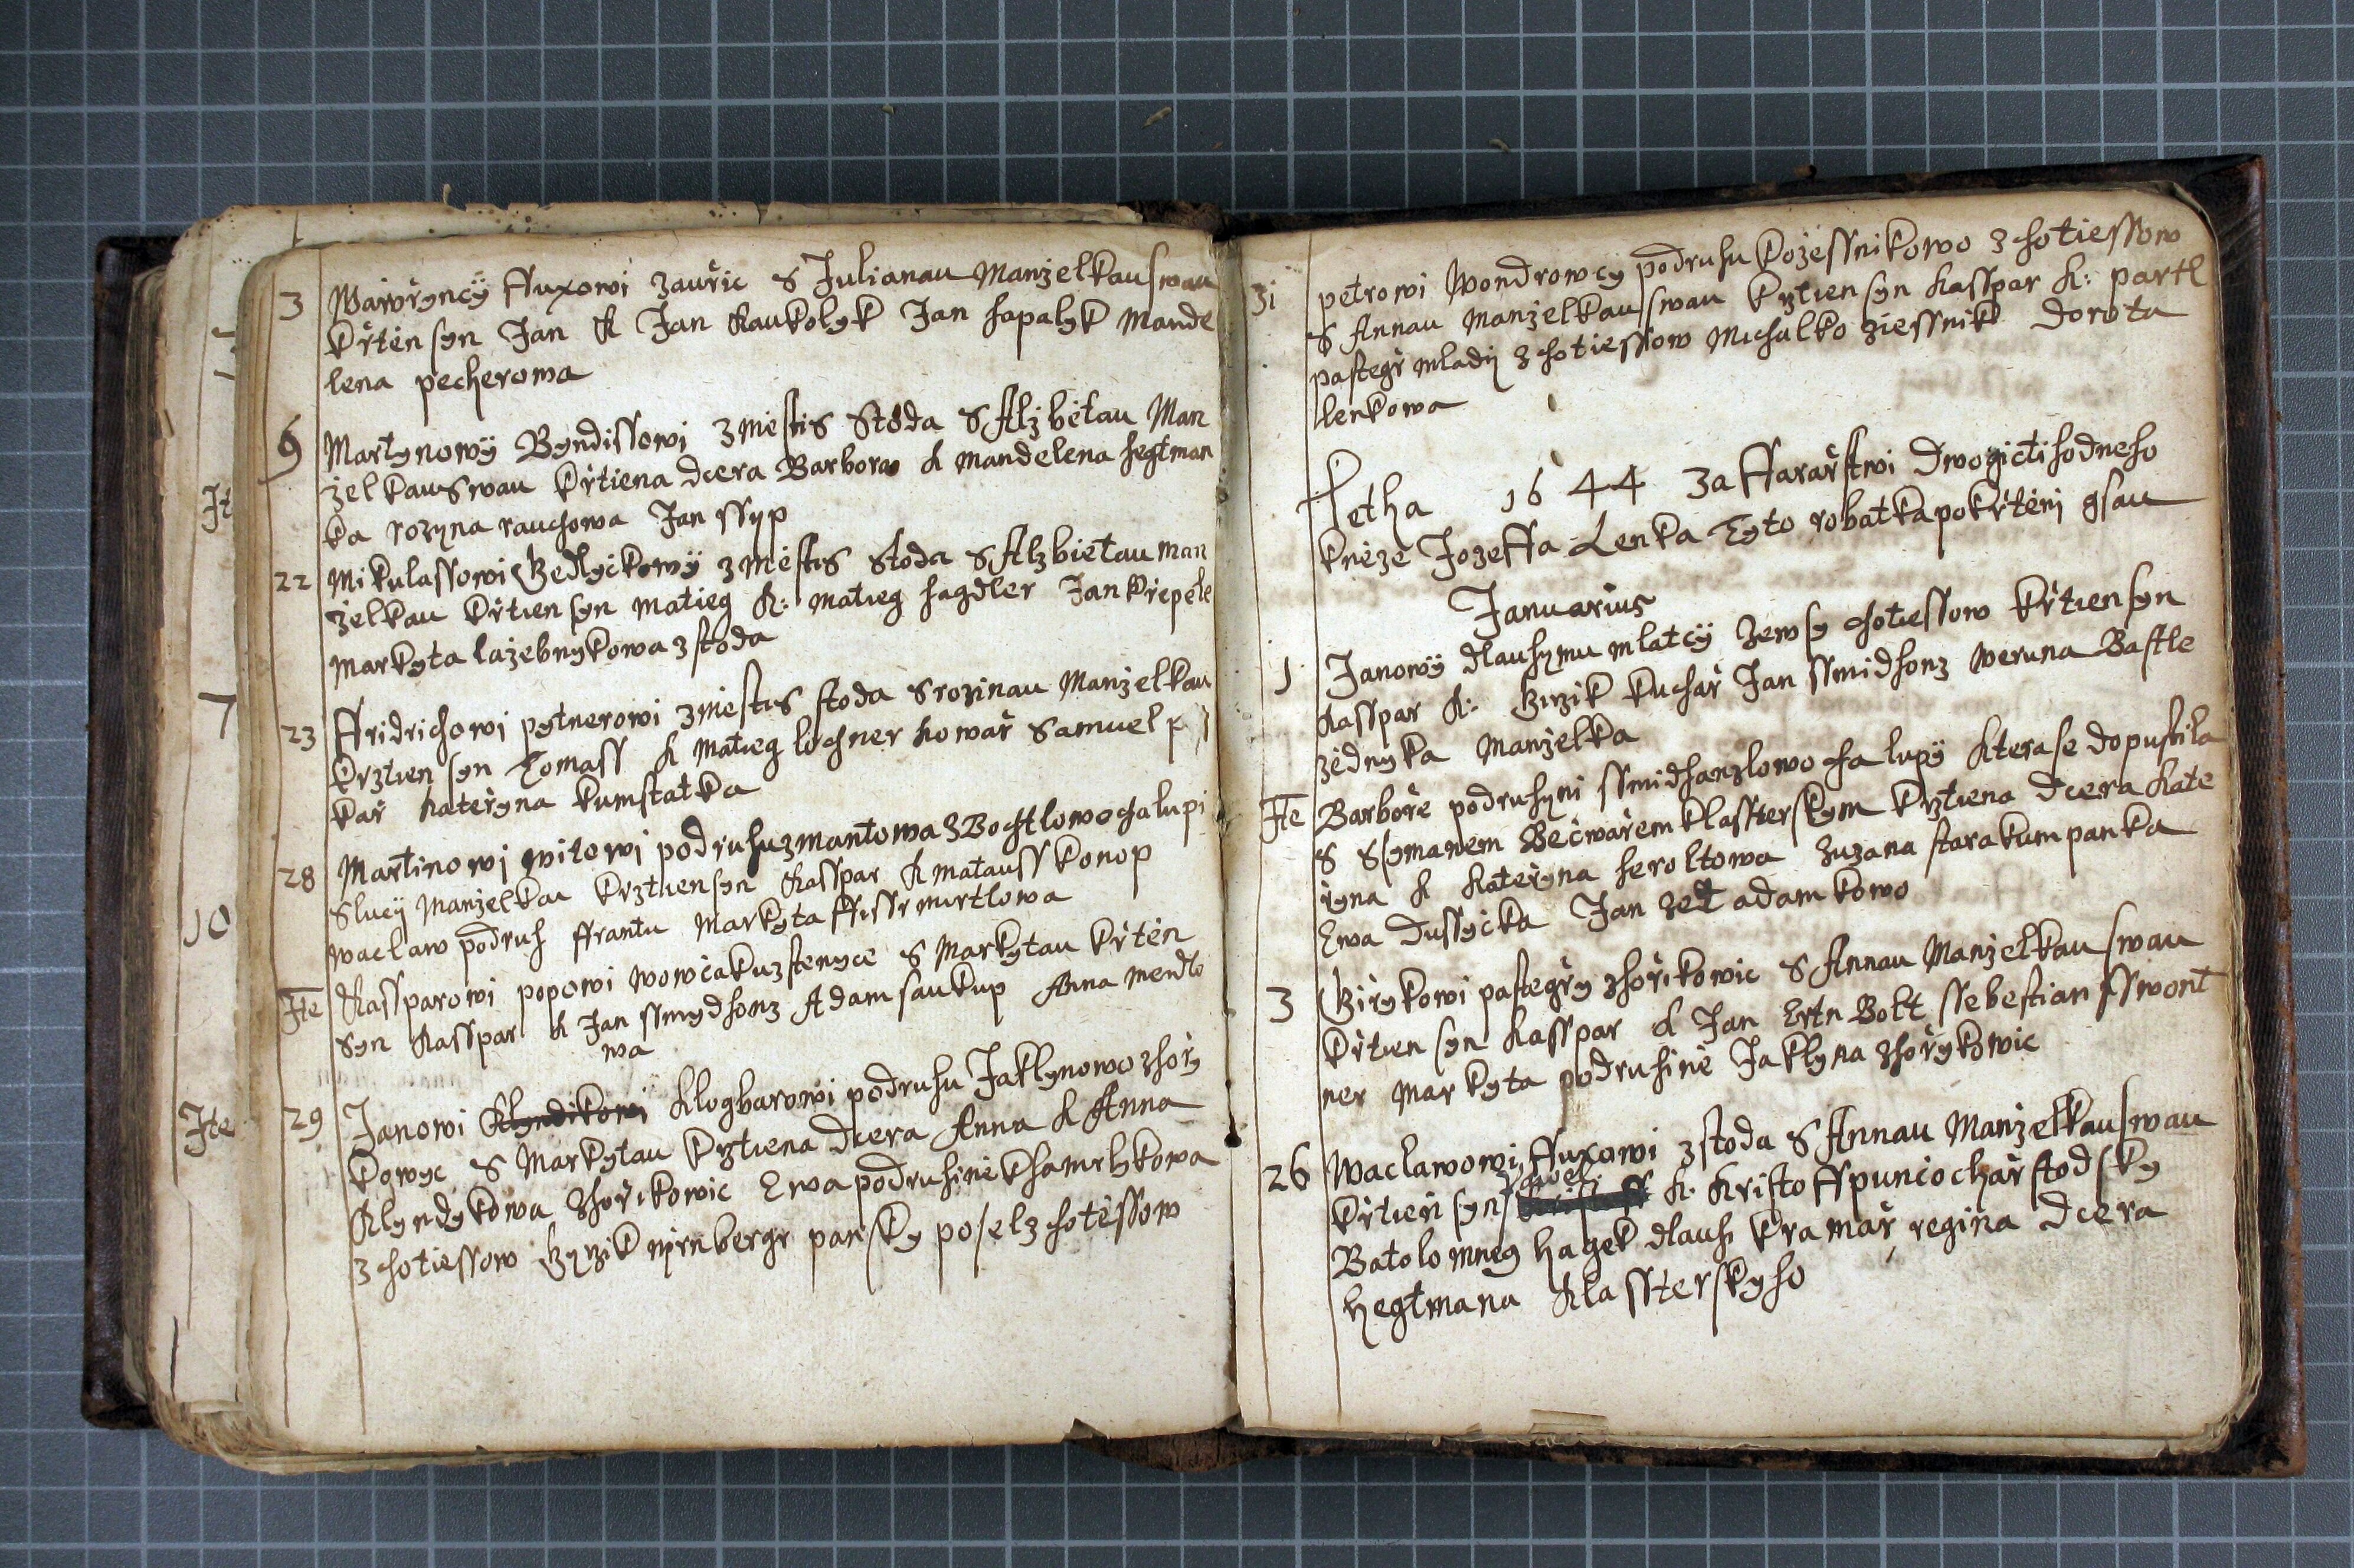 3 Wawrzyncÿ Fuxowi zauřic s Julianau Manzelkau swau
křtěn syn Jan K Jan Kaukolyk Jan hapalyk Mande
lena pecherowa
9 Martynowÿ Byndissowi z městis Stoda s Alzbětau Man
zelkau swau křtiena dcera Barbora K mandelena hegtman
ka rozyna rauchowa Jan ssyp
22 Mikulassowi Hedlyckowÿ z městis stoda s Alzbietau man
zelkau křtien syn matieg K: matieg hagdler Jan křepele
Markyta lazebnykowa z stoda
23 Fridrichowi pytnerowi z městis stoda s rozinau Manzelkau
krztien syn Tomass K matieg lochner kowář Samuel p
kař Kateřyna kumstatka
28 Martinowi witowi podruhu z mantowa z Bochtlowo chalupi
s lucÿ Manzelkau krztien syn Kasspar K matauss konop
waclaw podruh ffrantu Markyta ffissrmirtlowa
Ite Kassparowi popowi wowčaku z stenyce s Markytau křtěn
syn Kasspar K Jan ssmydhonz Adam saukup Anna mendlo
wa
29 Janowi Klyndikowi Klogbarowi podruhu Jaklynowo z hořy
kowyc s Markytau krztiena dcera Anna K Anna
Klyndykowa z hořikowic Ewa podruhině k hamrlykowa
z chotiessow Hyrzik nÿrnbergr panský posel z chotěssow
31 petrowi Wondrowcy podruhu kozessnikowo z chotiessow
s Annau Manzelkau swau krztien syn Kasspar K: partl
pasteyř mladÿ z chotiessow Michalko ziessnik dorota
lenkowa
Letha 1644 za Fararzstwi dwogictihodneho
knězě Jozeffa Lenka Tyto robatka pokřtěnj gsau
Januarius
1 Janowÿ dlauhymu mlatcÿ ze wsy chotiessow křtien syn
Kasspar K: Hirzik kuchař Jan ssmidhonz weruna Bastle
zědnyka Manzelka
Ite Barboře podruhyni ssmidhanzlowo chalupÿ ktera se dopustila
s Ssymanem Bečwařem klassterskym krztiena dcera Kate
řyna K Kateřyna heroltowa zuzana stara kumpanka
Ewa dussyčka Jan zeť adamkowo
3 Hiřykowi pasteyřy z hořikowic s Annau Manzelkau swau
křtien syn Kasspar K Jan Ertn Bolt ssebestian sswont
ner Markyta podruhině Jaklyna z hořykowic
26 Waclawowi Fuxowi z stoda s Annau Manzelkau swau
pawel
křtien syn K. Kristoff punčochář stodský
Batolomneg hagek dlauh kramář regina dcera
hegtmana Klassterskyho
Ite
7
10
Ite